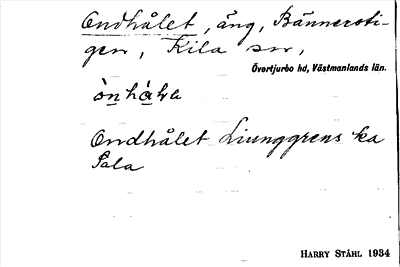 Ondhålet, äng, Bännersti-
gen, Kila sn,
Övertjurbo hd, Västmanlands län.
Ondhålet Liunggrens ka
Sala
HARRY STÅHL 1934